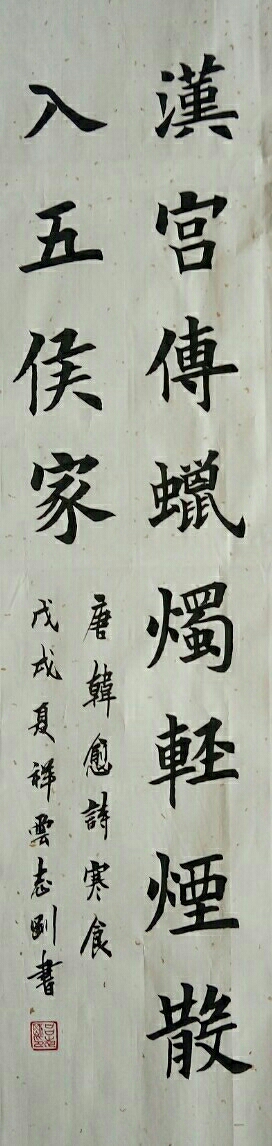 漢宮傳蠟燭輕煙散
入五侯家
唐韓愈詩寒食
戊戌夏祥雲志剛書